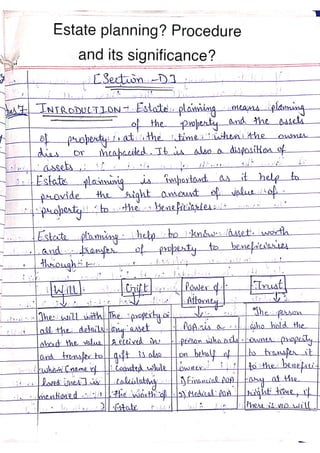 Estate planning? Procedure
and its significance?
[Section - D]
Ans 7 INTRODUCTION - Estate planning means planning
of the property and the assets
of property at the time when the owner
dies or incapacited. It is also a disposition of
assets.
Estate planning is important as it help to
provide the right amount of value of
property to the beneficiaries.
Estate planning help to know asset worth
and transfer of property to beneficiaries
through :-
Will
The will with
all the details
about the value
and transfer to
whose (name of
loved ones) is
mentioned
Gift
The property or
any asset
received in
gift is also
counted while
calculating
the worth of
Estate
Power of
Attorney
POA is a
person who acts
on behalf of
owner.
1) Financial POA
2) Medical POA
Trust
The person
who hold the
owner property
to transfer it
to the benefici-
ary at the
right time, if
there is no will.